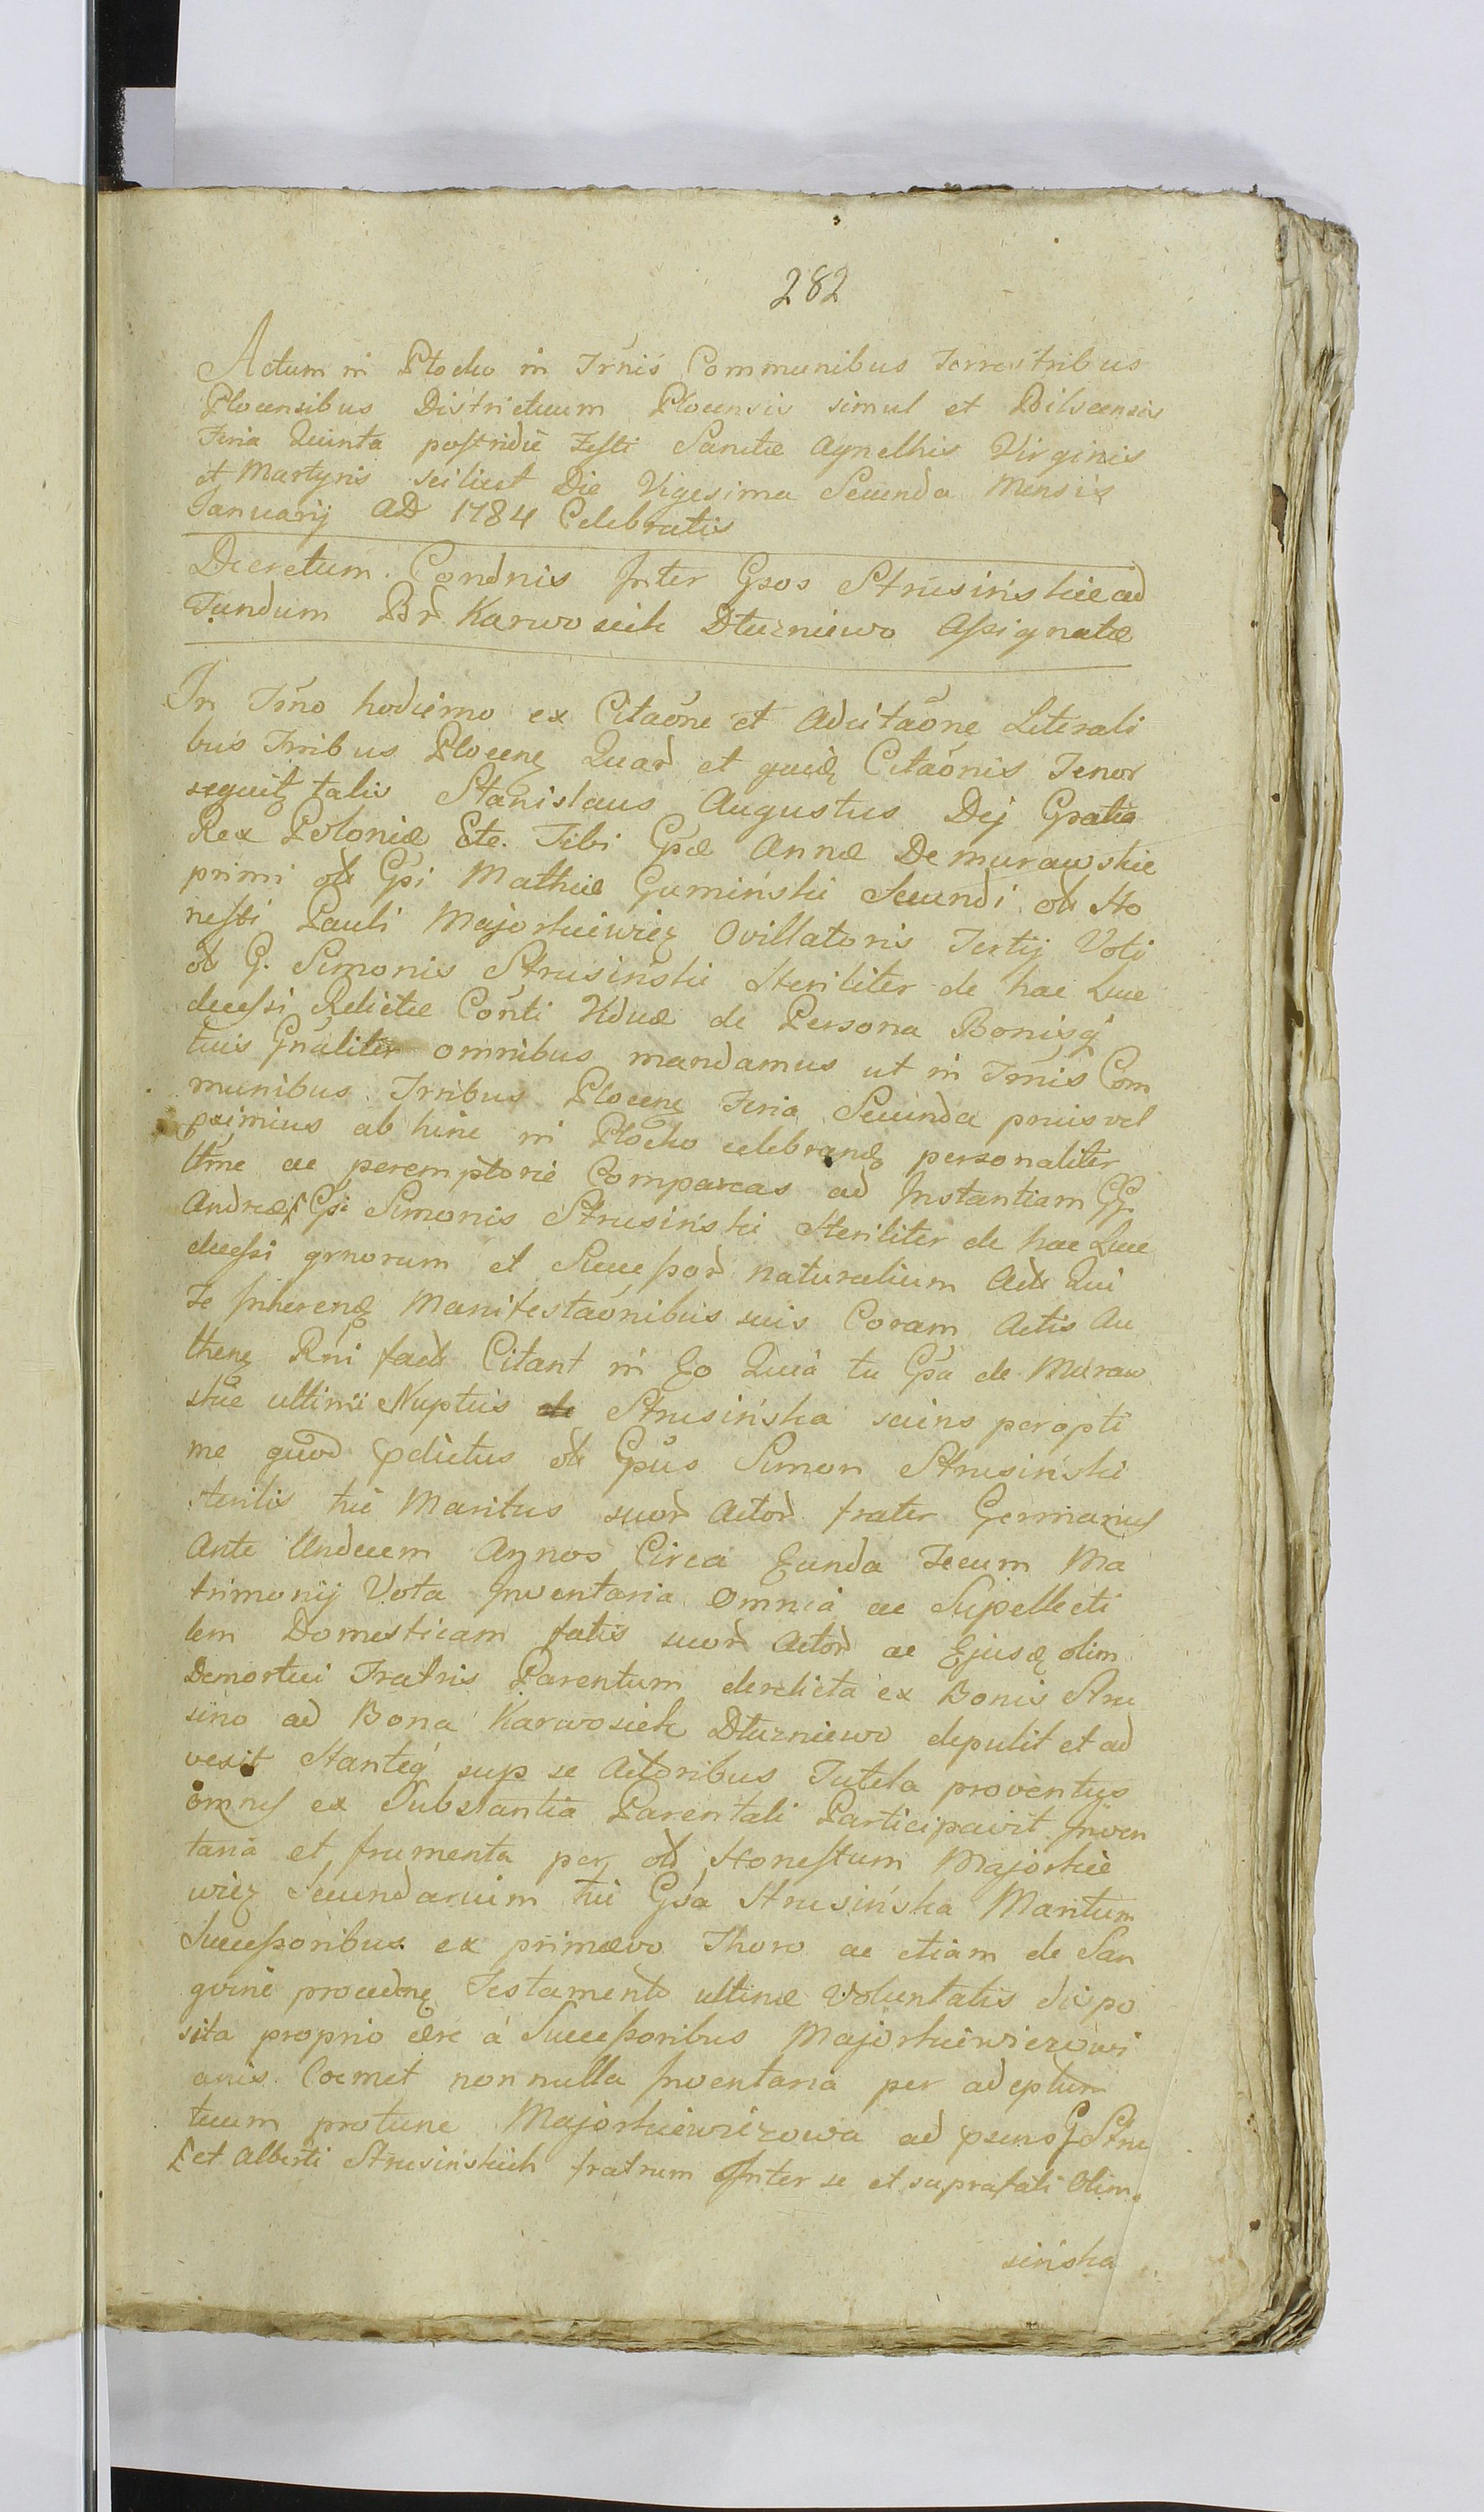 282
Actum in Płocko in Trnis Communibus Terrestribus
Plocensibus Districtuum Plocensis simul et Bilscensis
Feria Quinta postridie Festi Sanctæ Agnethis Virginis
et Martyris scilicet Die Vigesima Secunda Mensis
Januarij AD 1784 Celebratis
Decretum Condnis Inter Gsos Strusińskie ad
Fundum Br̃ Karwosiek Dłuzniewo Assignatæ
In Trno hodierno ex Citaõne et Adcitaõne Literali
bus Trribus Plocen Quar et quid Citaõnis Tenor
sequitz talis Stanislaus Augustus Dej Gratia
Rex Poloniæ Etc. Tibi Gsæ Annæ De Murawskie
primi ol Gsi Mathiæ Gumiński Secundi ol Ho
nesti Pauli Majorkiewicz Ovillatoris Tertij Voti
ol G. Simonis Strusiński Steriliter de hac Luce
decessi Relictæ Conti Viduæ de Persona Bonisq
tuis Gnaliter omnibus mandamus ut in Trnis Com
munibus Trribus Plocen Feria Secunda prius vel
pximius ab hinc in Płocko celebrand personaliter
Ltme ac peremptorie Compareas ad Instantiam GG.
Andreæ Γ Gsi Simonis Strusiński Steriliter de hac Luce
decessi grnorum et Successor naturalium Act Qui
Te Inherend Manifestaõnibus suis Coram Actis Au
then Rni fact Citant in Eo Quia tu Gsa de Muraw
skie ultimis Nuptiis de Strusińska sciens peropti
me quod pdictus ol Gsus Simon Strusiński
sterilis tui Maritus suor Actor frater Germanus
Ante Undecem Annos Circa Eunda Tecum Ma
trimonij Vota Inventaria Omnia ac Supellecti
lem Domesticam fatis suor Actor ac Ejusd olim
Demortui Fratris Parentum derelicta ex Bonis Stru
sino ad Bona Karwosiek Dłuzniewo depulit et ad
vexit Stanteq sup se Actoribus Tutela proventus
omnes ex Substantia Parentali Participavit Inven
taria et frumenta per ol Honestum Majorkie
wicz Secundarium tui Gsa Strusińska Maritum
Successoribus ex primævo Thoro ac etiam de San
guine procedne Testamento ultimæ Voluntatis dispo
sita proprio ære á Successoribus Majorkiewiczowi
anis Coemet nonnulla Inventaria per adeptum
tuum protunc Majorkiewiczowa ad psens G Stru
Γ et Alberti Strusińskich fratrum Inter se et suprafati Olim
sińska